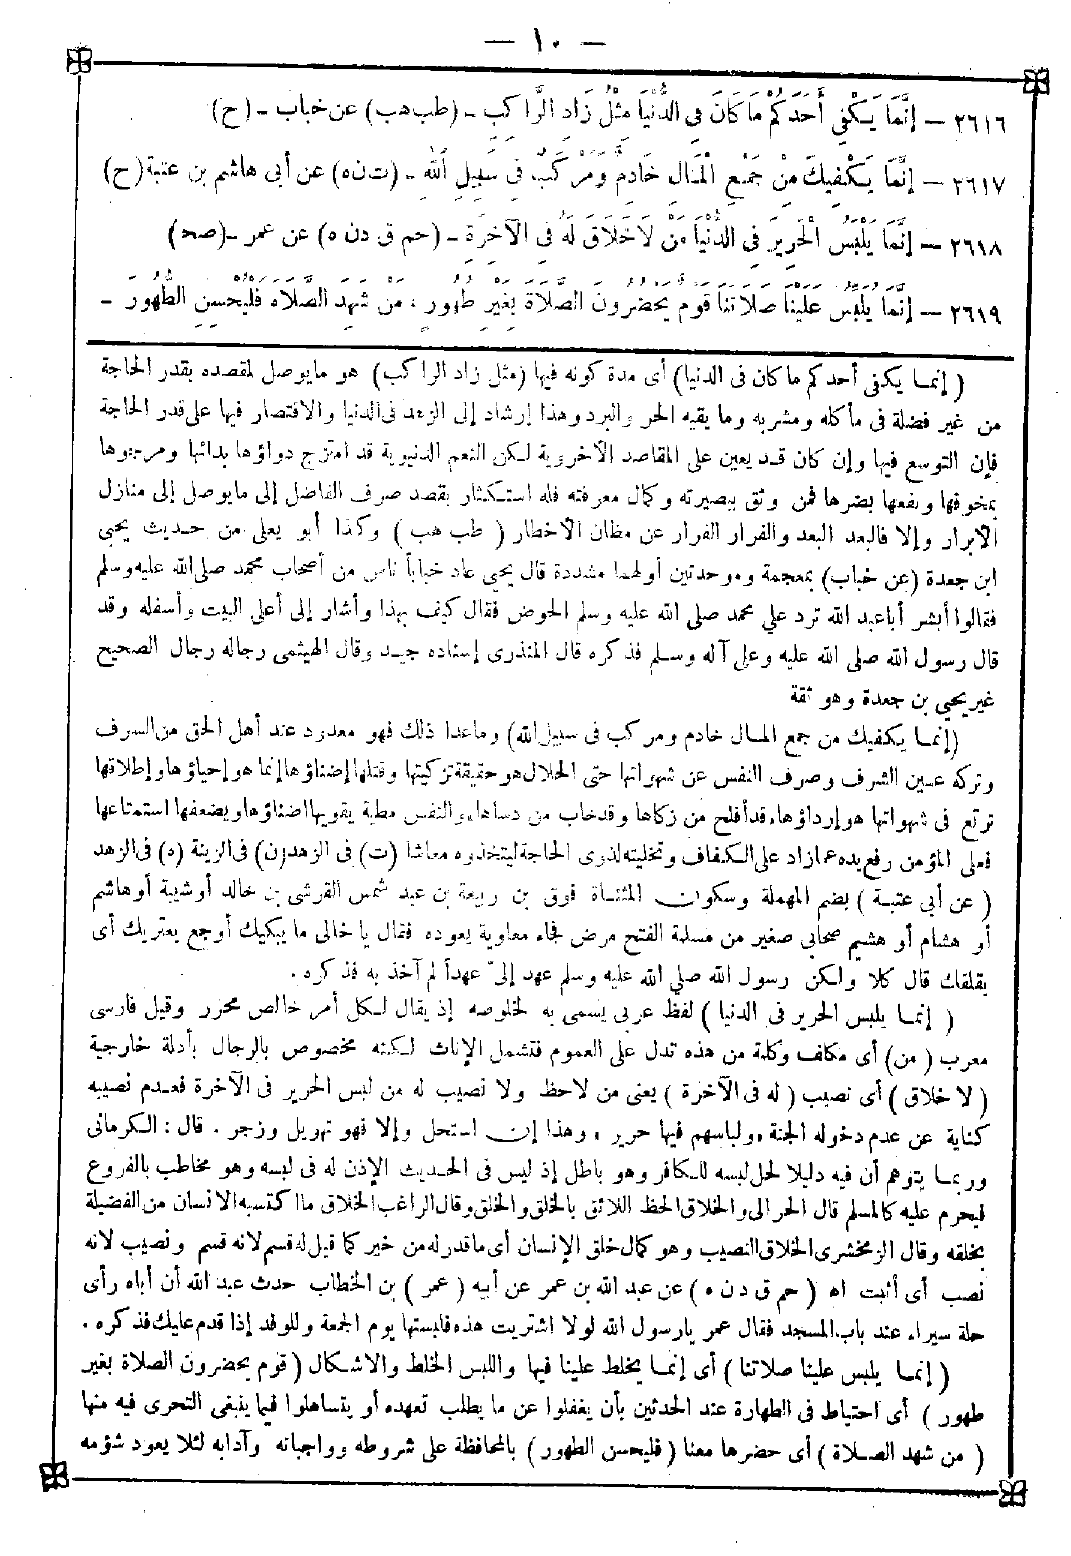 — ١٠ —
٢٦١٦ — إِنَّمَا يَكْفِي أَحَدَكُمْ مَا كَانَ فِي الدُّنْيَا مِثْلُ زَادِ الرَّاكِبِ - (طب هب) عن خباب - (ح)
٢٦١٧ — إِنَّمَا يَكْفِيكَ مِنْ جَمْعِ الْمَالِ خَادِمٌ وَمَرْكَبٌ فِي سَبِيلِ اللهِ - (ت ن ه) عن أبى هاشم بن عتبة (ح)
٢٦١٨ — إِنَّمَا يَلْبَسُ الْحَرِيرَ فِي الدُّنْيَا مَنْ لَا خَلَاقَ لَهُ فِي الْآخِرَةِ - (حم ق د ن ه) عن عمر - (صح)
٢٦١٩ — إِنَّمَا يَلْبِسُ عَلَيْنَا صَلَاتَنَا قَوْمٌ يَحْضُرُونَ الصَّلَاةَ بِغَيْرِ طُهُورٍ ، مَنْ شَهِدَ الصَّلَاةَ فَلْيُحْسِنِ الطُّهُورَ -
( إنما يكفى أحدكم ما كان فى الدنيا) أى مدة كونه فيها (مثل زاد الراكب) هو ما يوصل لمقصده بقدر الحاجة
من غير فضلة فى مأكله ومشربه وما يقيه الحر والبرد وهذا إرشاد إلى الزهد فى الدنيا والاقتصار فيها على قدر الحاجة
فإن التوسع فيها وإن كان قد يعين على المقاصد الأخروية لكن النعم الدنيوية قد امتزج دواؤها بدائها ومرجوها
بمخوفها ونفعها بضرها فمن وثق ببصيرته وكمال معرفته فله استكثار بقصد صرف الفاضل إلى ما يوصل إلى منازل
الأبرار وإلا فالبعد البعد والفرار الفرار عن مظان الأخطار ( طب هب ) وكذا أبو يعلى من حديث يحيى
ابن جعدة (عن خباب) بمعجمة وموحدتين أولهما مشددة قال يحيى عاد خباباً ناس من أصحاب محمد صلى الله عليه وسلم
فقالوا أبشر أبا عبد الله ترد على محمد صلى الله عليه وسلم الحوض فقال كيف بهذا وأشار إلى أعلى البيت وأسفله وقد
قال رسول الله صلى الله عليه وعلى آله وسلم فذكره قال المنذرى إسناده جيد وقال الهيثمى رجاله رجال الصحيح
غير يحيى بن جعدة وهو ثقة
(إنما يكفيك من جمع المال خادم ومركب فى سبيل الله) وما عدا ذلك فهو معدود عند أهل الحق من السرف
وتركه عين الشرف وصرف النفس عن شهواتها حتى الحلال هو حقيقة تزكيتها وقتلها إضناؤها إنما هو إحياؤها وإطلاقها
ترتع فى شهواتها هو إرداؤها ، قد أفلح من زكاها وقد خاب من دساها ، والنفس مطية يقويها اضناؤها ويضعفها استمتاعها
فعلى المؤمن رفع يده عما زاد على الكفاف وتخليته لذوى الحاجة ليتخذوه معاشا (ت) فى الزهد (ن) فى الزينة (ه) فى الزهد
( عن أبى عتبة ) بضم المهملة وسكون المثناة فوق بن ربيعة بن عبد شمس القرشى بن خالد أو شيبة أو هاشم
أو هشام أو هشيم صحابى صغير من مسلمة الفتح مرض فجاء معاوية يعوده فقال يا خالى ما يبكيك أوجع يعتريك أى
يقلقك قال كلا ولكن رسول الله صلى الله عليه وسلم عهد إلىّ عهداً لم آخذ به فذكره .
( إنما يلبس الحرير فى الدنيا ) لفظ عربى يسمى به لخلوصه إذ يقال لكل أمر خالص محرر وقيل فارسى
معرب ( من) أى مكلف وكلمة من هذه تدل على العموم فتشمل الإناث لكنه مخصوص بالرجال بأدلة خارجية
( لا خلاق ) أى نصيب ( له فى الآخرة ) يعنى من لاحظ ولا نصيب له من لبس الحرير فى الآخرة فعدم نصيبه
كناية عن عدم دخوله الجنة ، ولباسهم فيها حرير ، وهذا إن استحل وإلا فهو تهويل وزجر . قال : الكرمانى
وربما يتوهم أن فيه دليلا لحل لبسه للكافر وهو باطل إذ ليس فى الحديث الإذن له فى لبسه وهو مخاطب بالفروع
فيحرم عليه كالمسلم قال الحرالى والخلاق الحظ اللائق بالخلق والخلق وقال الراغب الخلاق ما اكتسبه الانسان من الفضيلة
بخلقه وقال الزمخشرى الخلاق النصيب وهو كمال خلق الإنسان أى ما قدر له من خير كما قيل له قسم لانه قسم ونصيب لانه
نصب أى أثبت اه ( حم ق د ن ه ) عن عبد الله بن عمر عن أبيه ( عمر ) بن الخطاب حدث عبد الله أن أباه رأى
حلة سيراء عند باب المسجد فقال عمر يا رسول الله لولا اشتريت هذه فلبستها يوم الجمعة وللوفد إذا قدم عليك فذكره .
( إنما يلبس علينا صلاتنا ) أى إنما يخلط علينا فيها واللبس الخلط والاشكال ( قوم يحضرون الصلاة بغير
طهور ) أى احتياط فى الطهارة عند الحدثين بأن يغفلوا عن ما يطلب تعهده أو يتساهلوا فيما ينبغى التحرى فيه منها
( من شهد الصلاة ) أى حضرها معنا ( فليحسن الطهور ) بالمحافظة على شروطه وواجباته وآدابه لئلا يعود شؤمه